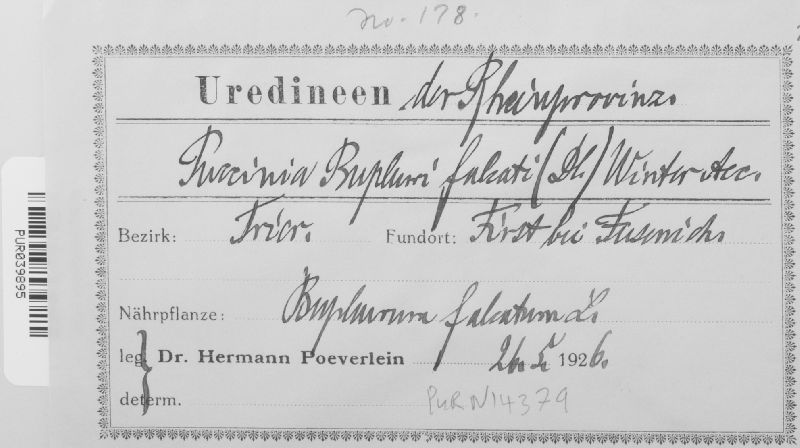 No. 178.
Uredineen der Rheinprovinz.
Puccinia Bupleuri falcati (DC.) Winter Aec.
Bezirk: Trier. Fundort: First bei Fusenich.
Nährpflanze: Bupleurum falcatum L.
leg. Dr. Hermann Poeverlein 1926.
determ. PUR N14379
PUR039895